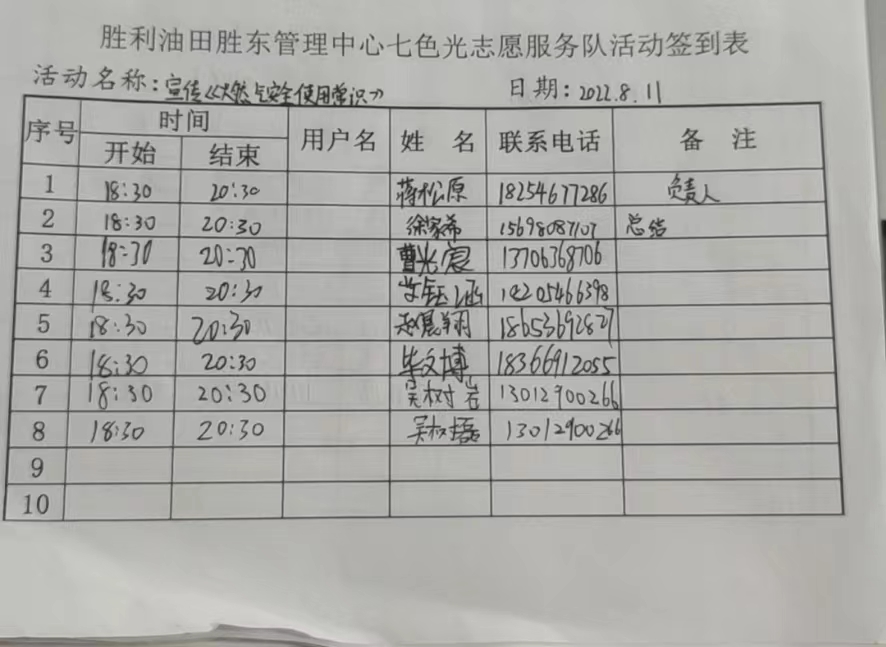 胜利油田胜东管理中心七色光志愿服务队活动签到表
活动名称：宣传《燃气安全使用常识》 日期：2022.8.11
序号 时间 用户名 姓名 联系电话 备注
开始 结束
1 18:30 20:30 蒋松原 18254677286 负责人
2 18:30 20:30 徐家希 15698087107 总结
3 18:30 20:30 曹光宸 13706368706
4 18:30 20:30
5 18:30 20:30 赵晨翔 18653692827
6 18:30 20:30 毕文博 18366912055
7 18:30 20:30 吴树岩 13012900266
8 18:30 20:30 吴树磊 13012900266
9
10